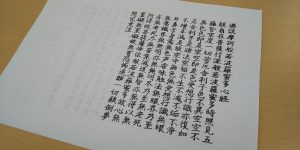 佛説摩訶般若波羅蜜多 経
観自在菩薩行深般若波羅蜜多時照見五
蘊皆空度一切苦厄舎利子色不異空空不
異色色即是空空即是色受想行識亦復如
是舎利子是諸法空相不生不滅不垢不浄
不増不減是故空中無色無受想行識無眼
耳鼻舌身意無色声香味触法無眼界乃至
無意識界無無明亦無無明尽乃至無老死
亦無老死尽無苦集滅道無智亦無得以無
所得故菩提薩埵依般若波羅蜜多故心無
罣礙無罣礙故無有恐怖遠離一切顛倒夢
想究竟涅